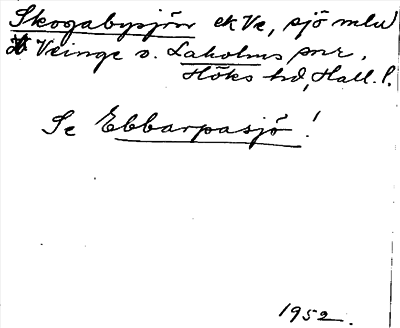 Skogabysjön ek Ve, sjö mlu
Veinge o. Laholms snr,
Höks hd, Hall. l.
Se Ebbarpasjö!
1952.